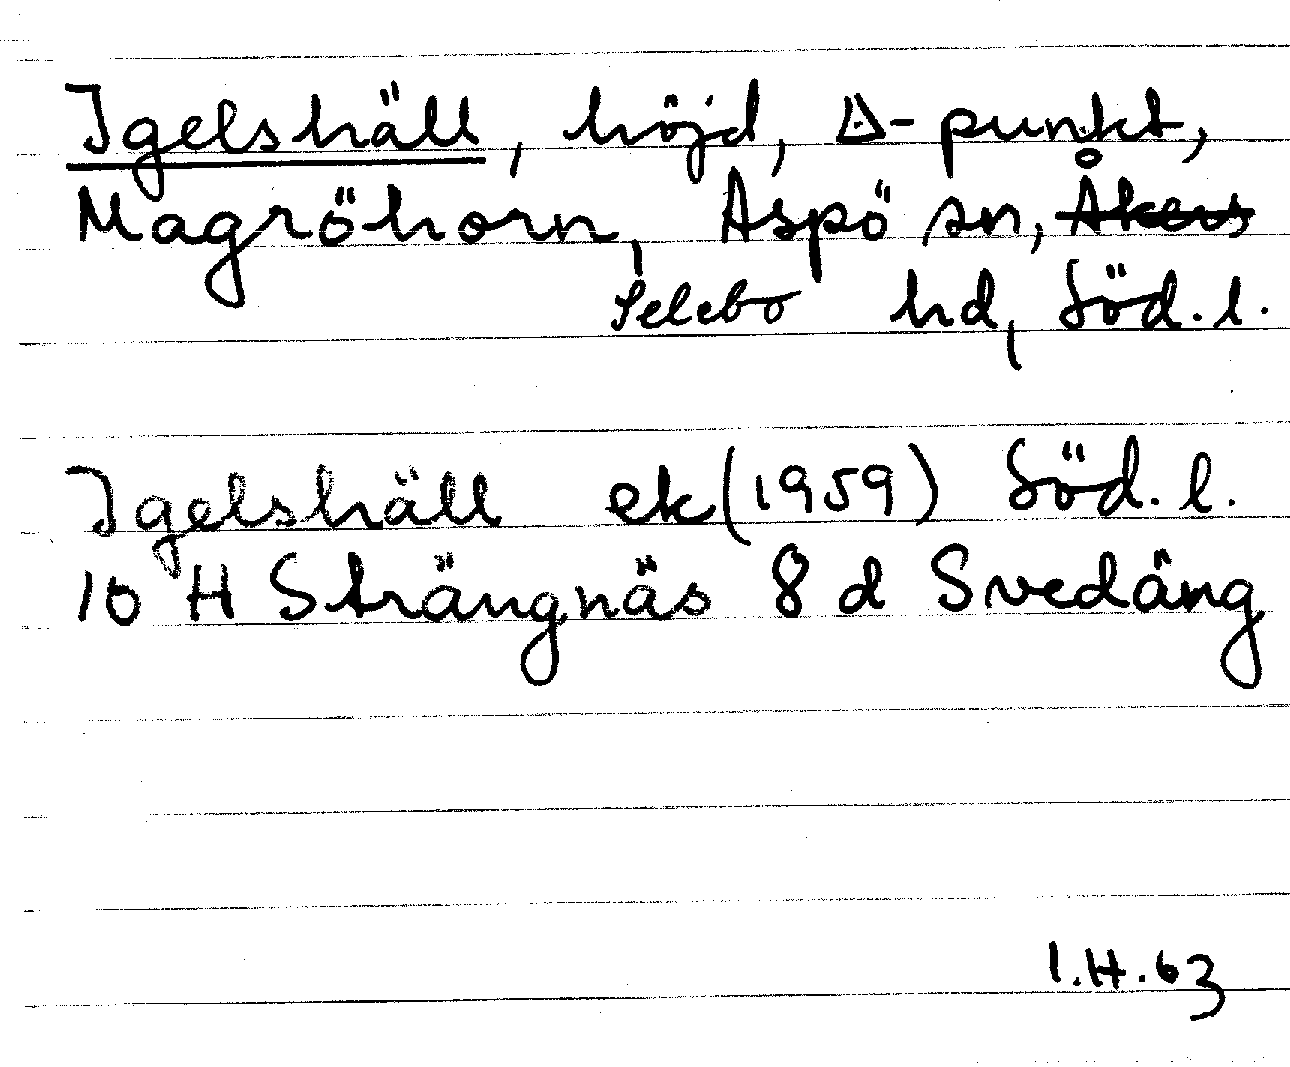 Igelshäll, höjd, △-punkt,
Magröhorn, Aspö sn, Åkers
Selebo hd, Söd. l.
Igelshäll ek (1959) Söd. l.
10 H Strängnäs 8 d Svedäng
I.H.63